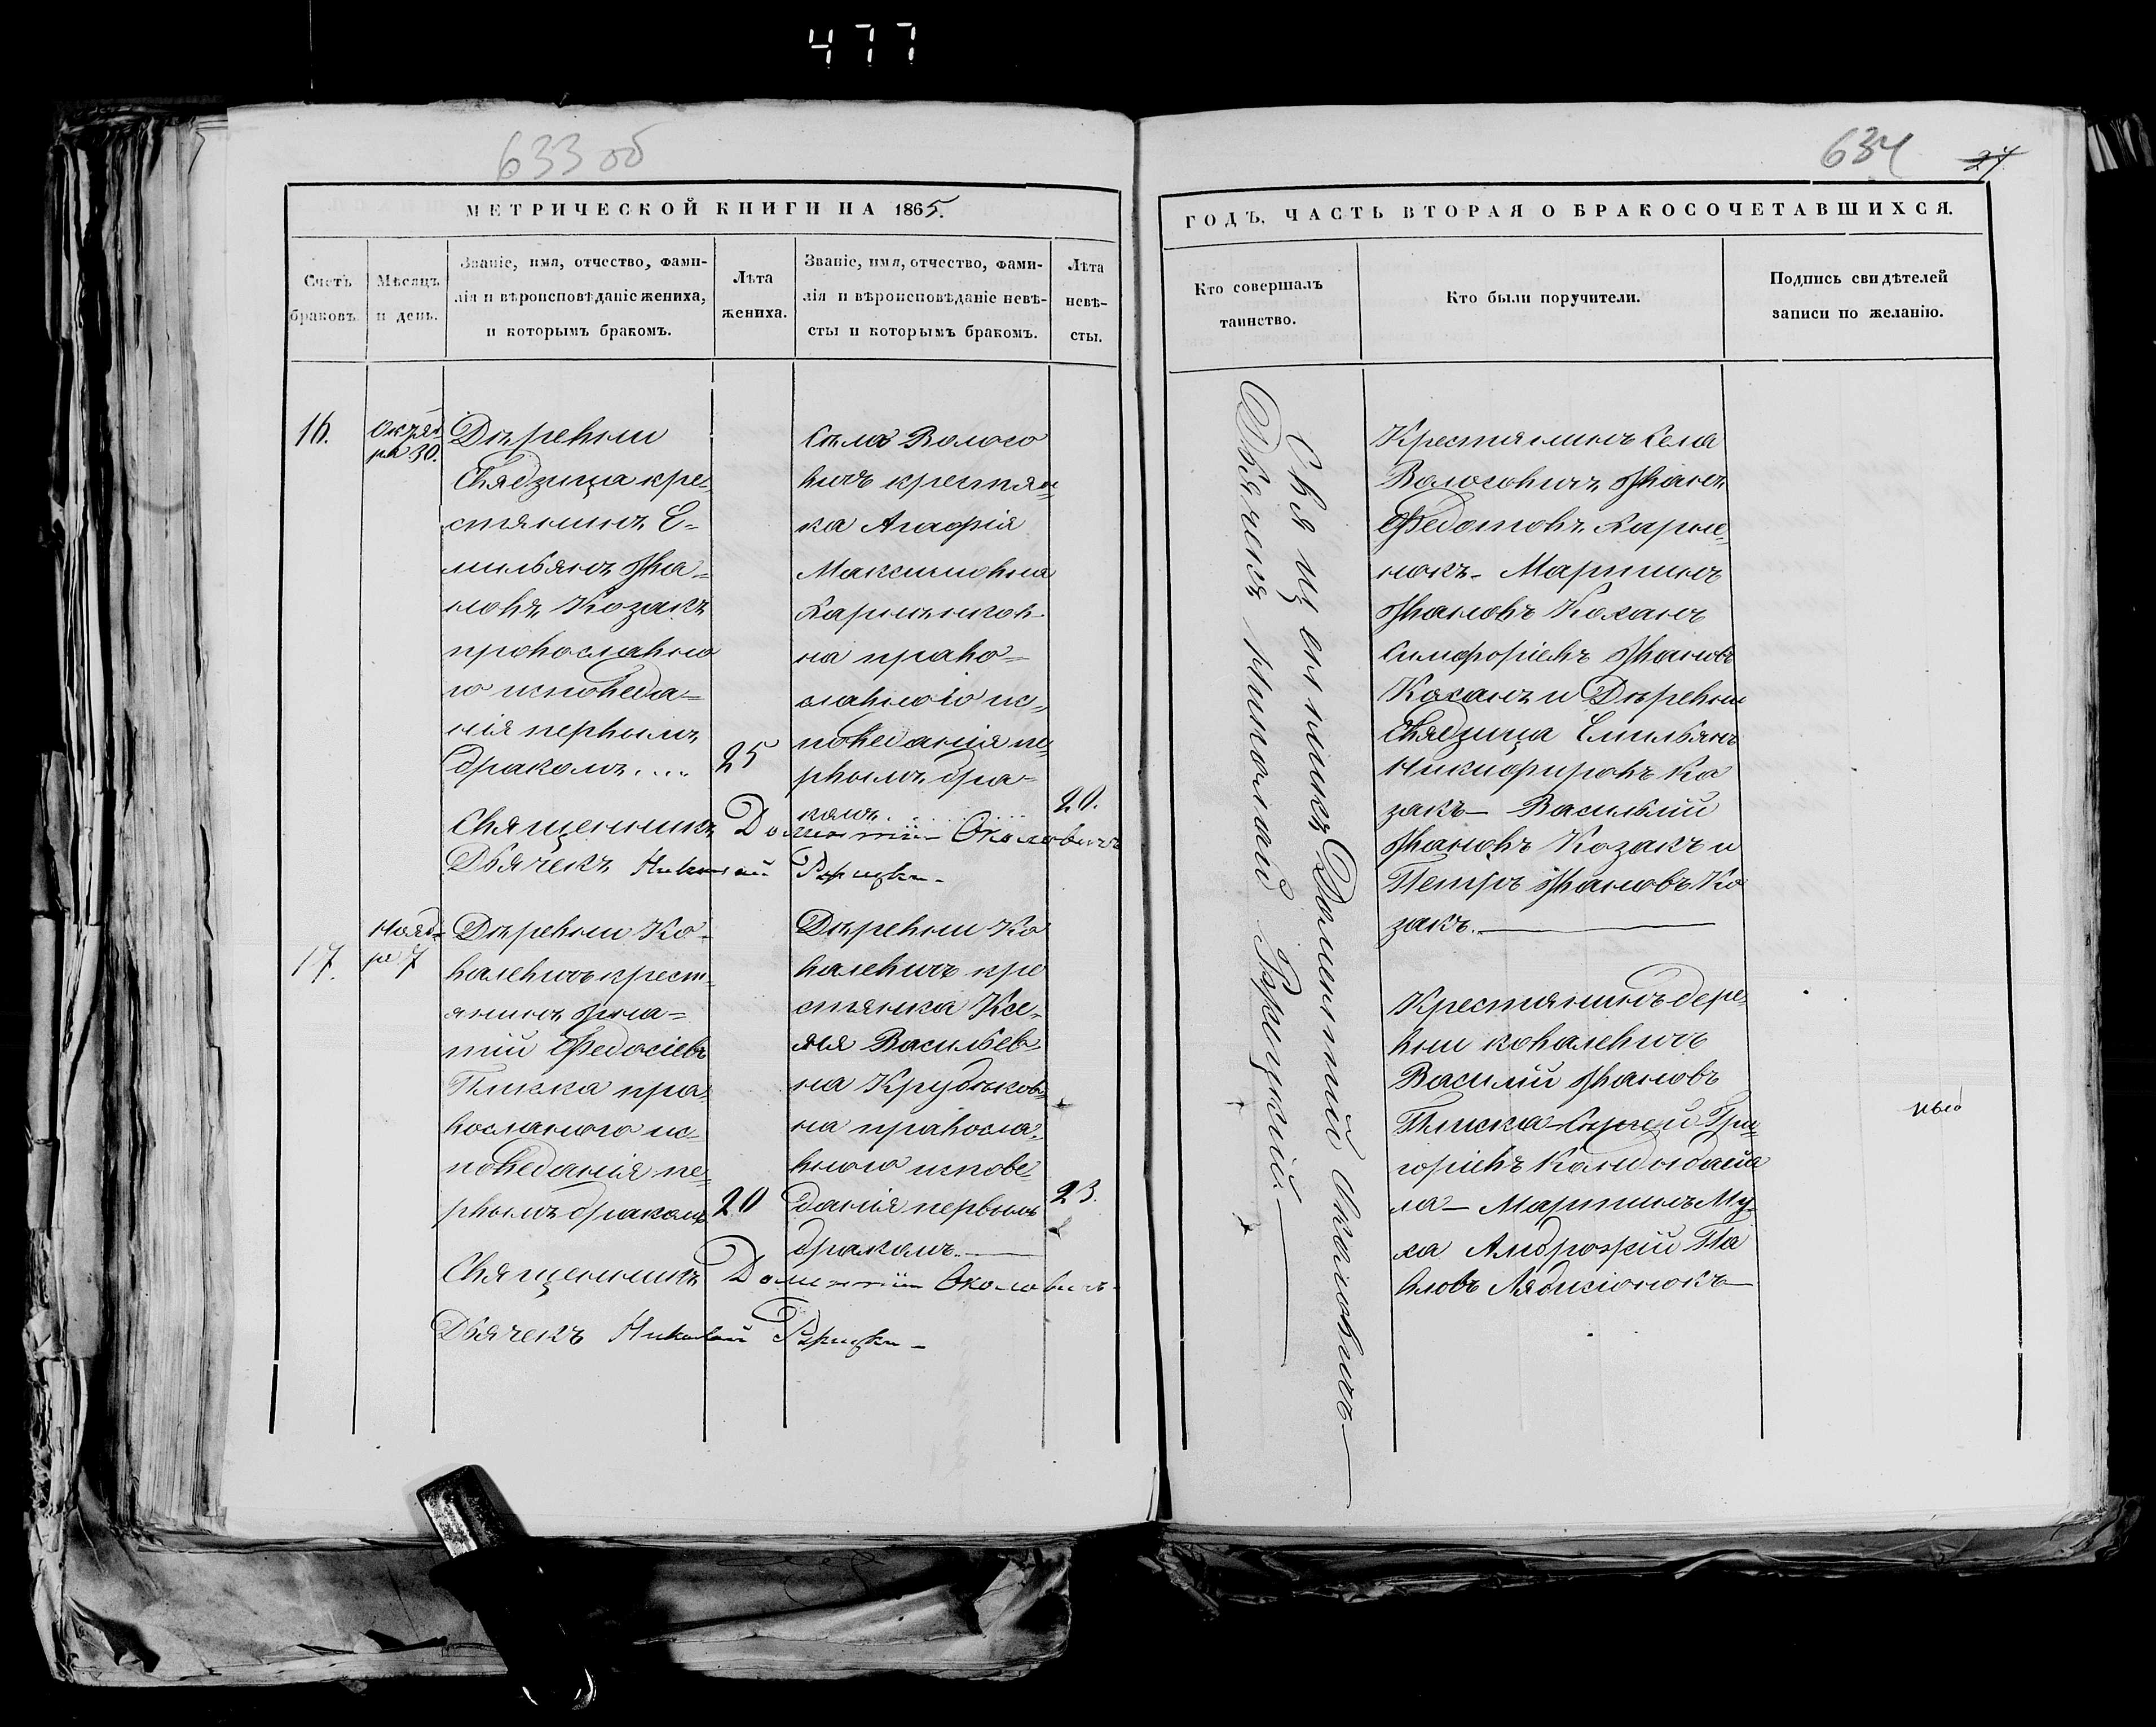 477
633 об
МЕТРИЧЕСКОЙ КНИГИ НА 1865.
Счетъ
браковъ.
Мѣсяцъ
и день.
Званіе, имя, отчество, фами-
лія и вѣроисповѣданіе жениха,
и которымъ бракомъ.
Лѣта
жениха.
Званіе, имя, отчество, фами-
лія и вѣроисповѣданіе невѣ-
сты и которымъ бракомъ.
Лѣта
невѣ-
сты.
16.
Октяб
ря 30.
Дѣревни
Свядзица кре-
стянинъ Е-
мильянъ Ива-
новъ Козакъ
провославно
го исповеда-
нія первымъ
бракомъ....
25
Села Волосо
вичъ крестян-
ка Агафія
Максимовна
Карпѣнков-
на право-
славного ис-
поведанія пе-
рвымъ бра-
комъ.
20.
Священникъ Доментій Околовичъ
Дьячекъ Николай
17.
Нояб-
ря 7
Дѣревни Ко-
валевичъ крест-
янинъ Игна-
тій Федосіевъ
Плиска пра-
вославного ис-
поведанія пе-
рвымъ бракомъ
20
Дѣревни Ко
валевичъ кре
стьянка Ксе-
нія Васильев-
на Крубников-
на правосла-
вного испове-
данія первымъ
бракомъ.
23.
Священникъ Доментій Околовичъ
Дьячекъ Николай
634
24
ГОДЪ, ЧАСТЬ ВТОРАЯ О БРАКОСОЧЕТАВШИХСЯ.
Кто совершалъ
таинство.
Кто были поручители.
Подпись свидѣтелей
записи по желанію.
Священникъ Доментій Околовичъ
Дьячекъ Николай
Крестянинъ Села
Волосовичъ Иванъ
Федотовъ Карпе-
нокъ - Мартинъ
Ивановъ Коханъ
Симфоріевъ Ивановъ
Коханъ и Дѣревни
Свядзица Емильянъ
Никифировъ Ка
закъ - Василій
Ивановъ Козакъ и
Петръ Ивановъ Ко
закъ.
Крестянинъ дере-
вни ковалевичъ
Василій Ивановъ
Плиска Сергей Гри-
горіевъ
ла - Мартинъ Му-
ха Андрей Па
вловъ